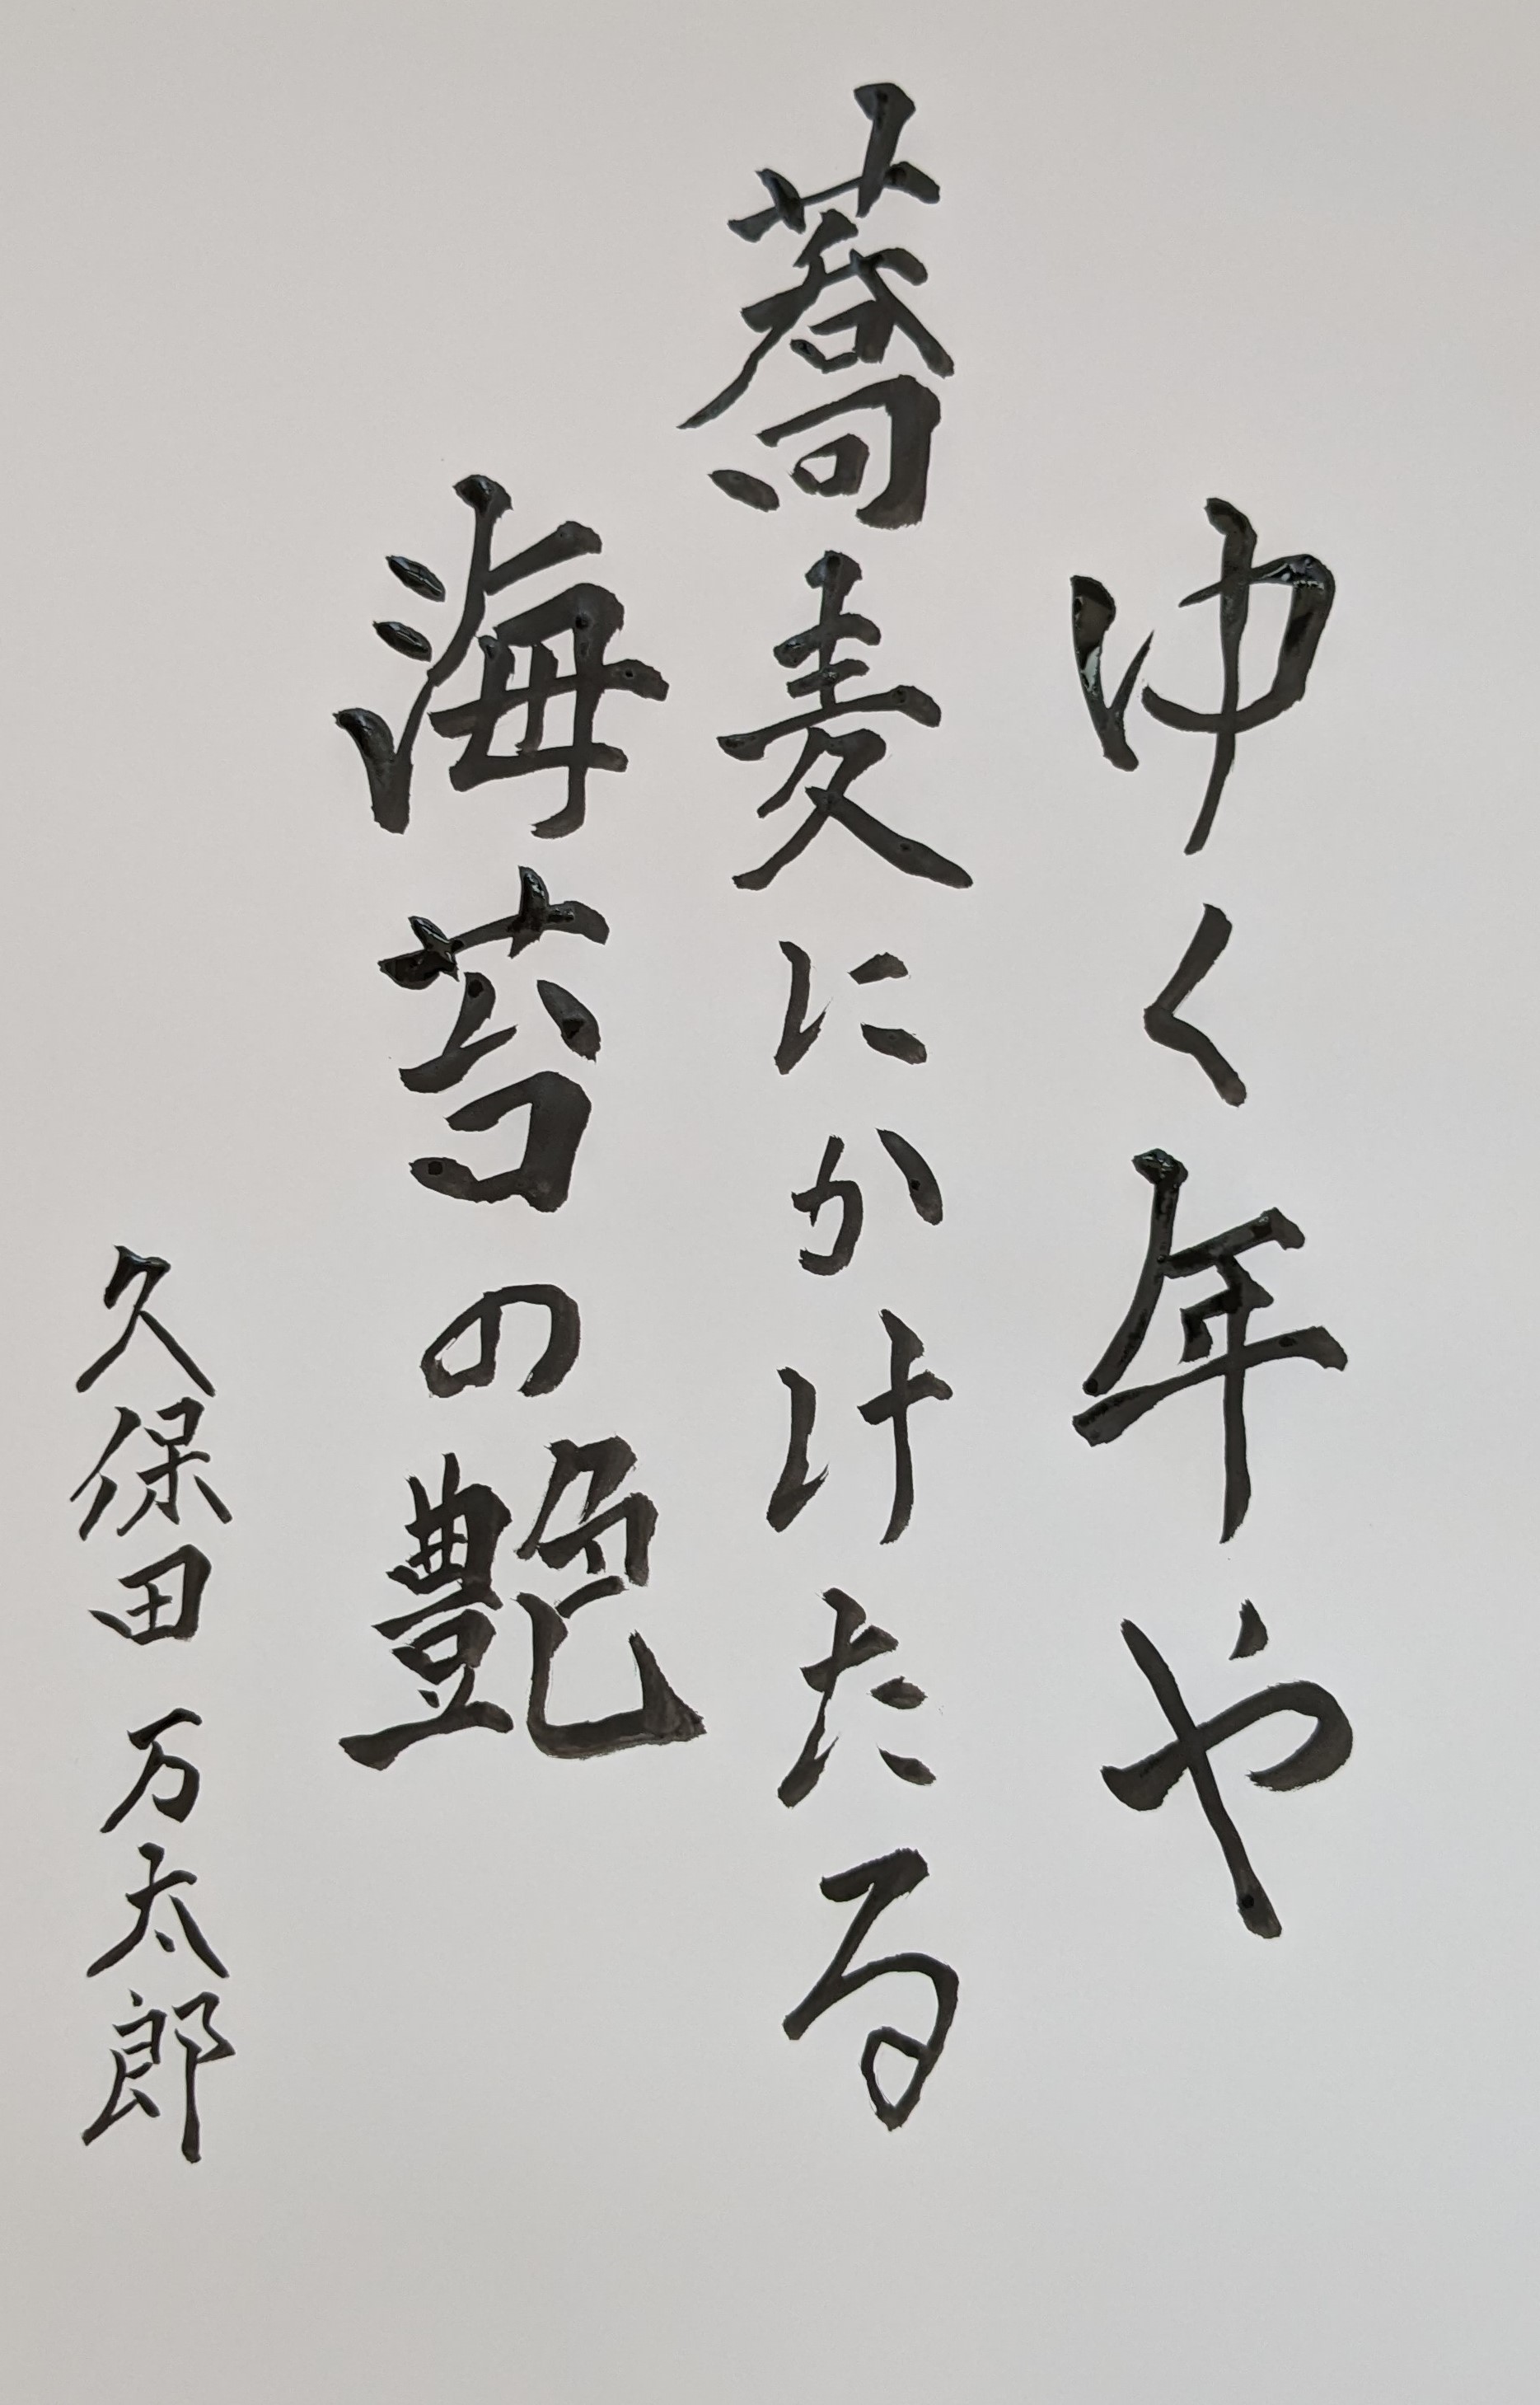 ゆく年や
蕎麦にかけたる
海苔の艶
久保田 万太郎